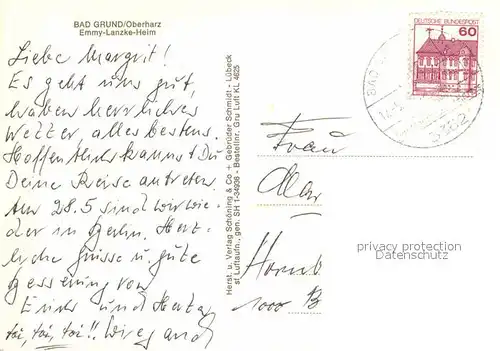 BAD GRUND/Oberharz
Emmy-Lanzke-Heim
Liebe Margrit!
Es geht uns gut,
haben herrliches
Wetter, alles bestens.
Hoffentlich kannst Du
Deine Reise antreten.
Am 28.5 sind wir wie-
der in Berlin. Herz-
liche Grüsse u. gute
Besserung von
Erich und Herta,
toi, toi, toi!!
Herst. u. Verlag Schöning & Co + Gebrüder Schmidt, Lübeck
st Luftaufn., gen. SH 1-34936 - Bestellnr. Gru Luft KL 4625
DEUTSCHE BUNDESPOST
60
BAD
3362
Frau
Mar
privacy protection
Datenschutz
Hornb
1000 B